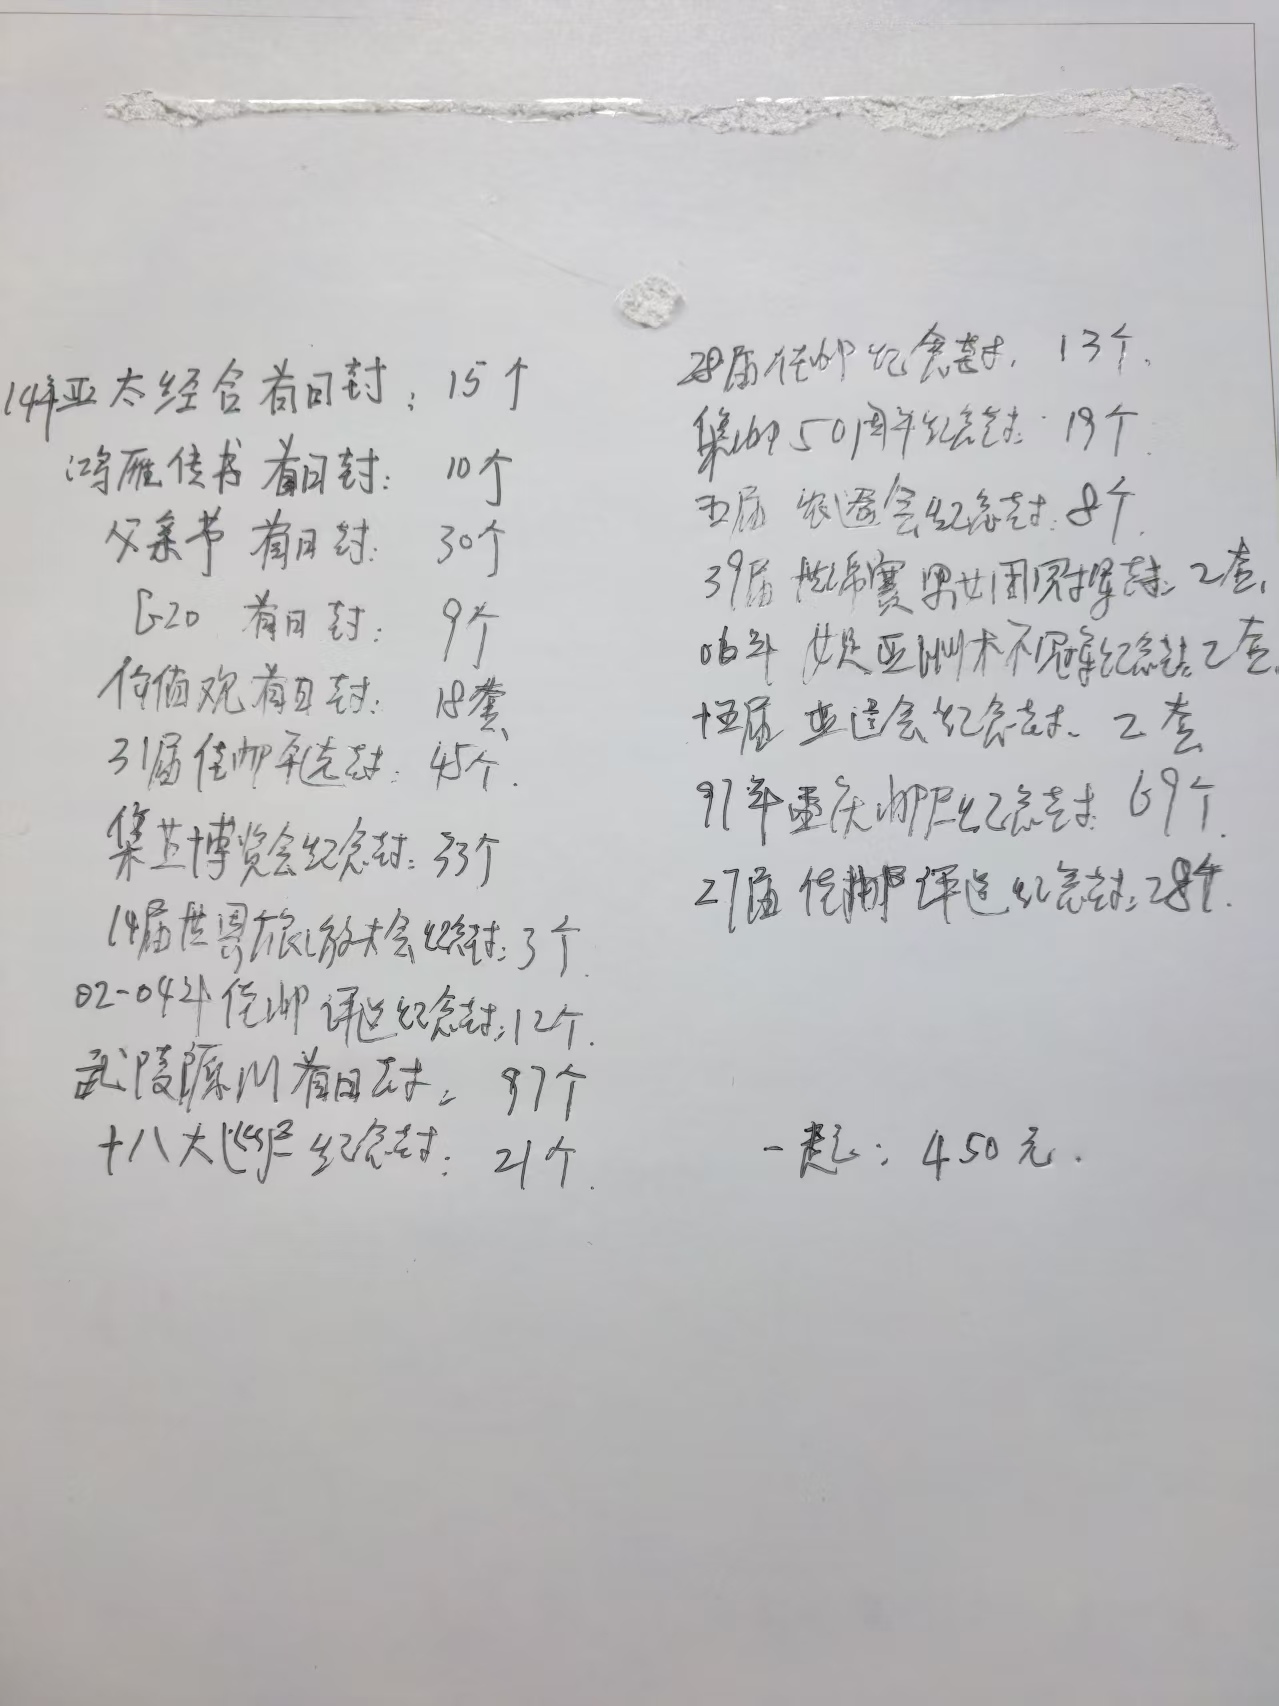 14年亚太经合首日封：15个
鸿雁传书 首日封：10个
父亲节 首日封：30个
G20 首日封：9个
价值观首日封：18套
31届佳邮评选封：45个.
集 博览会纪念封：33个
14届世界旅游大会纪念封：3个.
02-04年佳邮评选纪念封：12个.
武陵源 首日封：97个
十八大 纪念封：21个.
28届佳邮纪念封. 13个.
集邮50周年纪念封：19个.
五届 农运会纪念封：8个.
39届 世乒赛男女团冠军封：2套.
06年 女足亚洲杯冠军纪念封：2套.
十五届 亚运会纪念封. 2套
97年重庆邮 纪念封：69个.
27届 佳邮评选纪念封：28个.
一起：450元.